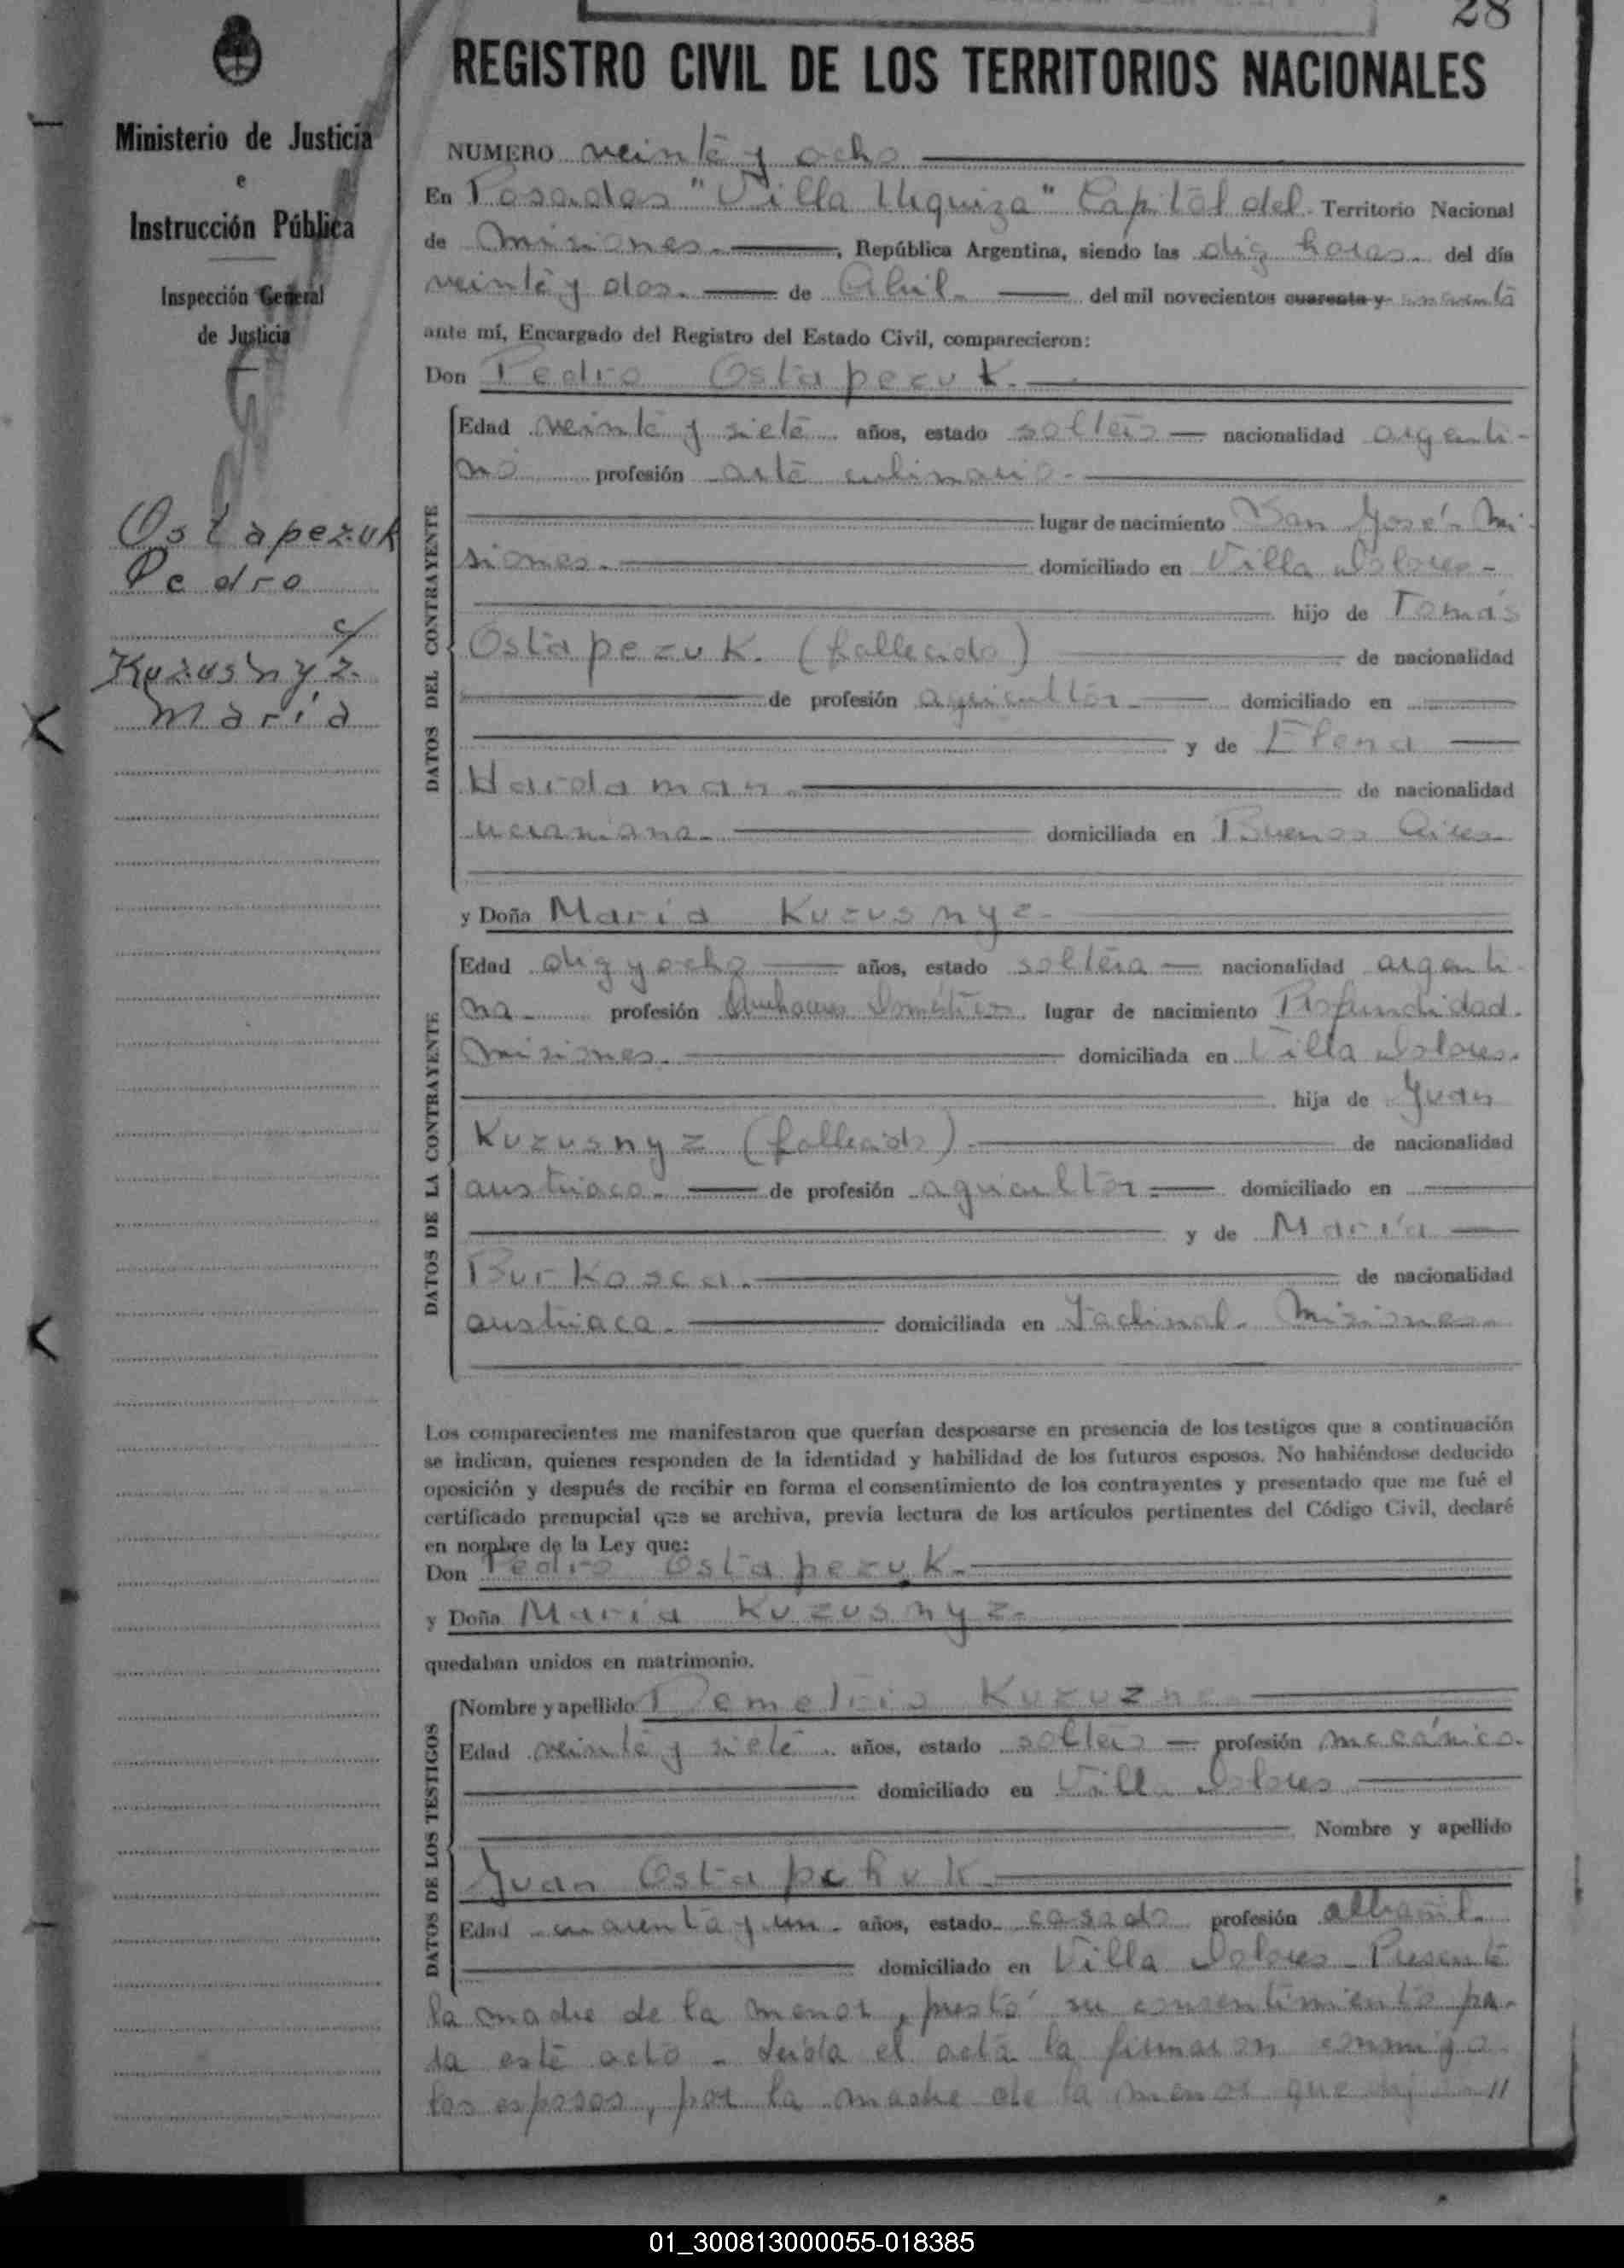 28
REGISTRO CIVIL DE LOS TERRITORIOS NACIONALES
Ministerio de Justicia
e
Instrucción Pública
Inspección General
de Justicia
Ostapezuk
Pedro
c/
Kuzusnyz.
María
NUMERO veinte y ocho
En Posadas "Villa Urquiza" Capital del Territorio Nacional
de Misiones. , República Argentina, siendo las diez horas. del día
veinte y dos. de Abril. del mil novecientos cuarenta y cincuenta
ante mí, Encargado del Registro del Estado Civil, comparecieron:
Don Pedro Ostapezuk.
DATOS DEL CONTRAYENTE
Edad veinte y siete años, estado soltero nacionalidad argenti-
no profesión arte culinario.
lugar de nacimiento San José. Mi-
siones. domiciliado en Villa Dolores-
hijo de Tomás
Ostapezuk. (fallecido) de nacionalidad
de profesión agricultor. domiciliado en
y de Elena
Hardaman. de nacionalidad
ucraniana. domiciliada en Buenos Aires-
y Doña María Kuzusnyz-
DATOS DE LA CONTRAYENTE
Edad diez y ocho años, estado soltera nacionalidad argenti-
na. profesión Quehaceres Domésticos. lugar de nacimiento Profundidad.
Misiones. domiciliada en Villa Dolores.
hija de Juan
Kuzusnyz (fallecido). de nacionalidad
austriaco. de profesión agricultor. domiciliado en
y de María
Burkosca. de nacionalidad
austriaca. domiciliada en Fachinal. Misiones.
Los comparecientes me manifestaron que querían desposarse en presencia de los testigos que a continuación
se indican, quienes responden de la identidad y habilidad de los futuros esposos. No habiéndose deducido
oposición y después de recibir en forma el consentimiento de los contrayentes y presentado que me fué el
certificado prenupcial que se archiva, previa lectura de los artículos pertinentes del Código Civil, declaré
en nombre de la Ley que:
Don Pedro Ostapezuk.
y Doña María Kuzusnyz.
quedaban unidos en matrimonio.
DATOS DE LOS TESTIGOS
Nombre y apellido Demetrio
Edad veinte y siete. años, estado soltero profesión mecánico.
domiciliado en Villa Dolores
Nombre y apellido
Juan Ostapchuk.
Edad cuarenta y un. años, estado casado profesión albañil.
domiciliado en Villa Dolores. Presente
la madre de la menor, prestó su consentimiento pa-
ra este acto. Leída el acta la firmaron conmigo
los esposos, por la madre de la menor que
01_300813000055-018385